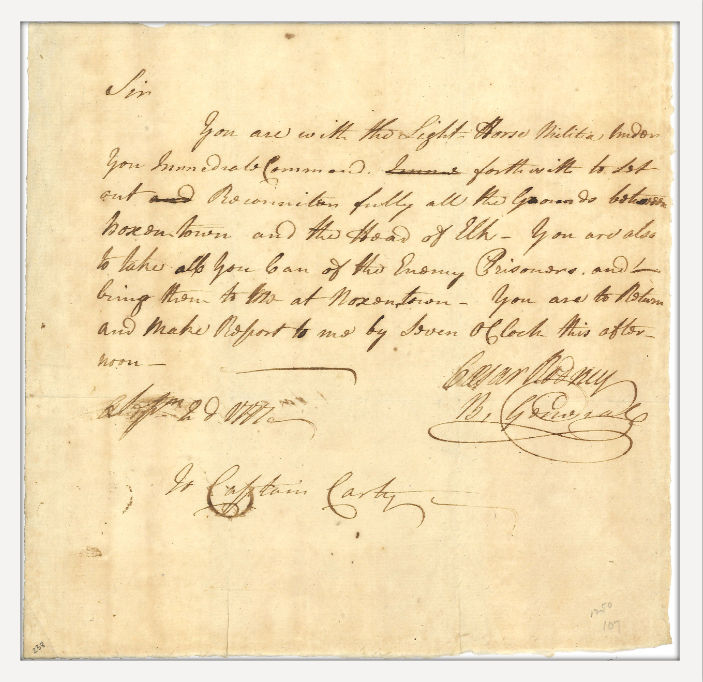 Sir
You are with the Light Horse Militia, Under
You Immediate Command. forthwith to Set
out and Reconniter fully all the Grounds between
Noxentown and the Head of Elk - You are also
to take all You Can of the Enemy Prisoners. and
bring them to Me at Noxentown - You are to Return
and Make Report to me by Seven OClock this after-
noon -
Cæsar Rodney
2d 1777
B, General
To Captain Carty
1250
107
238